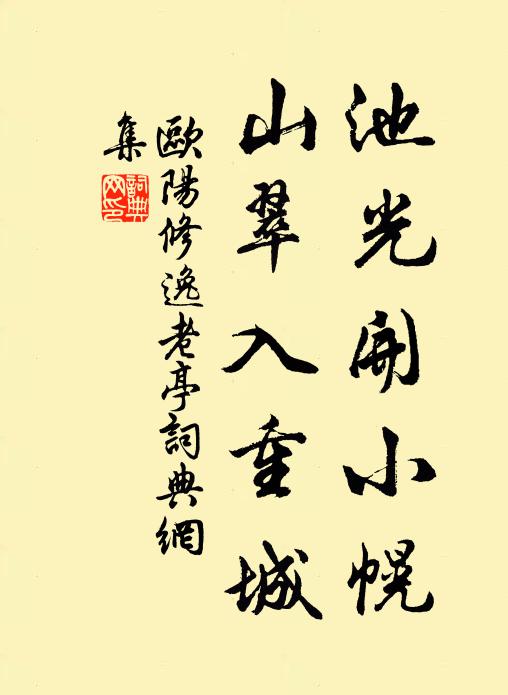 池光開小幌
山翠入重城
歐陽修逸老亭詞典網
集
詞典
网印